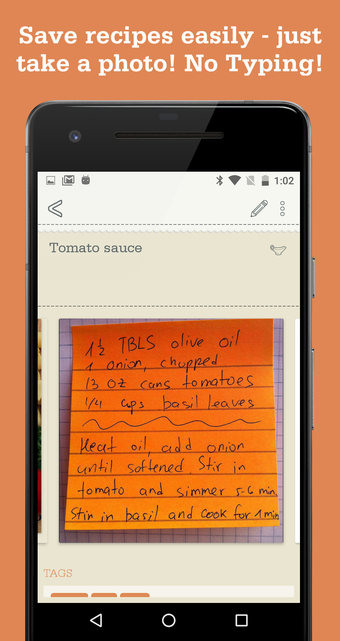 Save recipes easily - just
take a photo! No Typing!
1:02
Tomato sauce
1 1/2 TBLS olive oil
1 onion, chupped
13 oz cans tomatoes
1/4 cups basil leaves
Heat oil, add onion
until softened. Stir in
tomato and simmer 5-6 min.
Stir in basil and cook for 1 min
TAGS